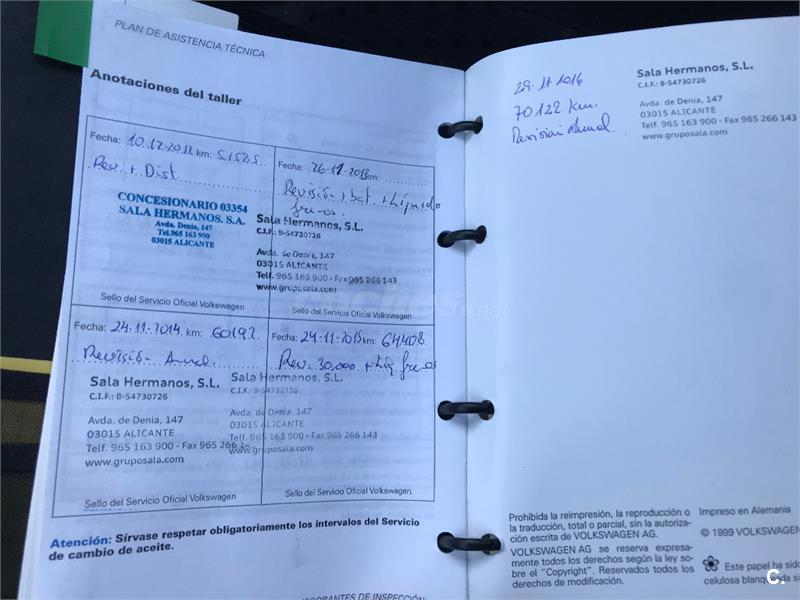 PLAN DE ASISTENCIA TÉCNICA
Anotaciones del taller
Fecha: 10.12.2012 km: 51525
Rev. + Dist.
CONCESIONARIO 03354
SALA HERMANOS. S.A.
Avda. Denia, 147
Tel. 965 163 900
03015 ALICANTE
Sello del Servicio Oficial Volkswagen
Fecha: 26-11-2013 km:
Revisión + bat. + Líquido
frenos.
Sala Hermanos, S.L.
C.I.F.: B-54730726
Avda. de Denia, 147
03015 ALICANTE
Telf. 965 163 900 - Fax 965 266 143
www.gruposala.com
Sello del Servicio Oficial Volkswagen
Fecha: 24-11-2014 km: 60192
Revisión Anual.
Sala Hermanos, S.L.
C.I.F.: B-54730726
Avda. de Denia, 147
03015 ALICANTE
Telf. 965 163 900 - Fax 965 266 1
www.gruposala.com
Sello del Servicio Oficial Volkswagen
Fecha: 24-11-2015 km: 64408
Rev. 30.000 + Liq. frenos
Sala Hermanos, S.L.
C.I.F.: B-54730726
Avda. de Denia, 147
03015 ALICANTE
Telf. 965 163 900 - Fax 965 266 143
www.gruposala.com
Sello del Servicio Oficial Volkswagen
Atención: Sírvase respetar obligatoriamente los intervalos del Servicio
de cambio de aceite.
29-11-2016
70122 km.
Revisión Anual.
Sala Hermanos, S.L.
C.I.F.: B-54730726
Avda. de Denia, 147
03015 ALICANTE
Telf. 965 163 900 - Fax 965 266 143
www.gruposala.com
Prohibida la reimpresión, la reproducción o
la traducción, total o parcial, sin la autoriza-
ción escrita de VOLKSWAGEN AG.
VOLKSWAGEN AG se reserva expresa-
mente todos los derechos según la ley so-
bre el "Copyright". Reservados todos los
derechos de modificación.
Impreso en Alemania
© 1999 VOLKSWAGEN
Este papel ha sido
celulosa blanqueada si
C.